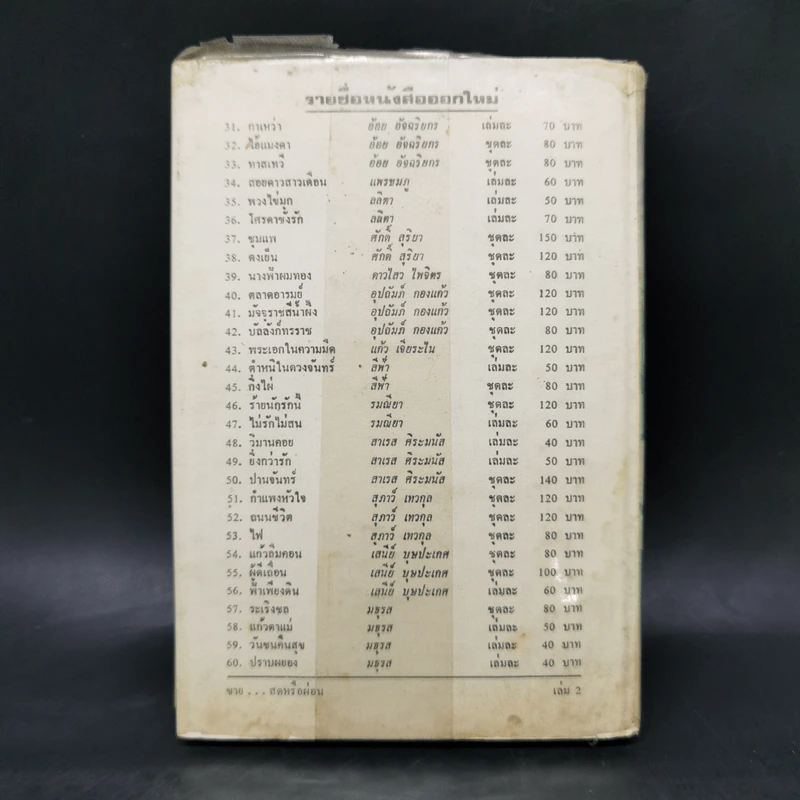 รายชื่อหนังสือออกใหม่
31. กาเหว่า อ้อย อัจฉริยกร เล่มละ 70 บาท
32. ไอ้แมงดา อ้อย อัจฉริยกร ชุดละ 80 บาท
33. ทาสเทวี อ้อย อัจฉริยกร ชุดละ 80 บาท
34. สอยดาวสาวเดือน แพรชมภู เล่มละ 60 บาท
35. พวงไข่มุก ลลิตา เล่มละ 50 บาท
36. โศรดาขังรัก ลลิตา เล่มละ 70 บาท
37. ชุมแพ ศักดิ์ สุริยา ชุดละ 150 บาท
38. ดงเย็น ศักดิ์ สุริยา ชุดละ 120 บาท
39. นางฟ้าผมทอง ดาวไสว ไพจิตร ชุดละ 80 บาท
40. ตลาดอารมย์ อุปถัมภ์ กองแก้ว ชุดละ 120 บาท
41. มัจจุราชสีน้ำผึ้ง อุปถัมภ์ กองแก้ว ชุดละ 120 บาท
42. บัลลังก์ทรราช อุปถัมภ์ กองแก้ว ชุดละ 80 บาท
43. พระเอกในความมืด แก้ว เจียระไน ชุดละ 120 บาท
44. ตำหนิในดวงจันทร์ สีฟ้า เล่มละ 50 บาท
45. กิ่งไผ่ สีฟ้า ชุดละ 80 บาท
46. ร้ายนักรักนี้ รมณียา ชุดละ 120 บาท
47. ไม่รักไม่สน รมณียา เล่มละ 60 บาท
48. วิมานคอย สาเรส ศิระมนัส เล่มละ 40 บาท
49. ยิ่งกว่ารัก สาเรส ศิระมนัส เล่มละ 50 บาท
50. ปานจันทร์ สาเรส ศิระมนัส ชุดละ 140 บาท
51. กำแพงหัวใจ สุภาว์ เทวกุล ชุดละ 120 บาท
52. ถนนชีวิต สุภาว์ เทวกุล ชุดละ 120 บาท
53. ไฟ สุภาว์ เทวกุล ชุดละ 80 บาท
54. แก้วลืมคอน เสนีย์ บุษปะเกศ ชุดละ 80 บาท
55. ผู้ดีเถื่อน เสนีย์ บุษปะเกศ ชุดละ 100 บาท
56. ฟ้าเพียงดิน เสนีย์ บุษปะเกศ เล่มละ 60 บาท
57. ระเริงชล มธุรส ชุดละ 80 บาท
58. แก้วตาแม่ มธุรส เล่มละ 50 บาท
59. วันชนคืนสุข มธุรส เล่มละ 40 บาท
60. ปราบผยอง มธุรส เล่มละ 40 บาท
ขาย...สดหรือผ่อน เล่ม 2